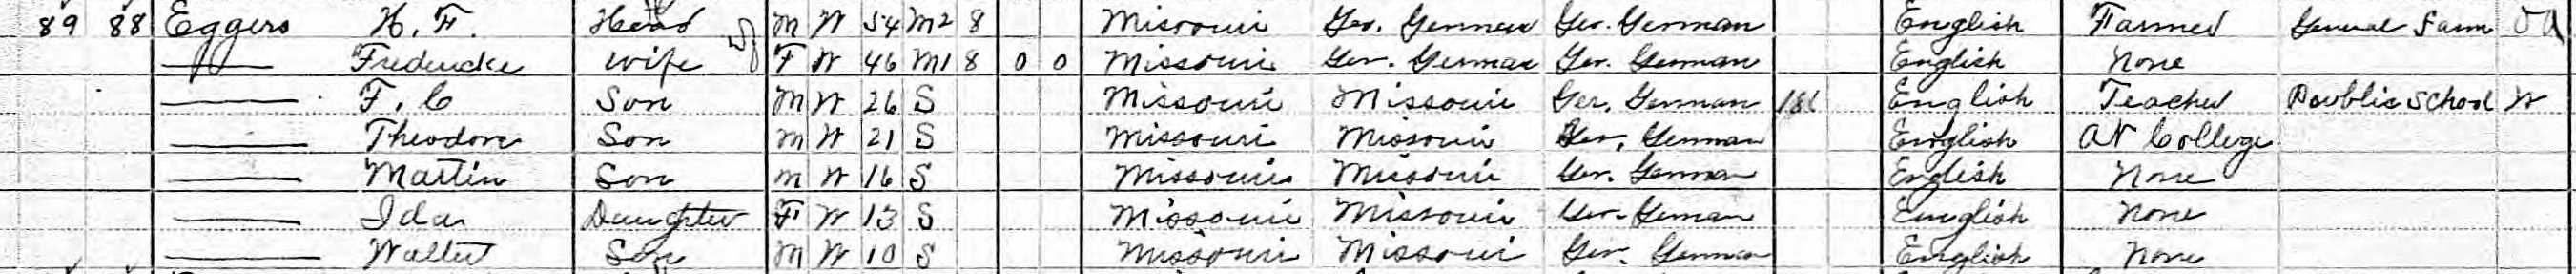 89 88 Eggers H. F. Head M W 54 M2 8 Missouri Ger. German Ger. German English Farmer General Farm OA
Fredericke Wife F W 46 M1 8 0 0 Missouri Ger. German Ger. German English None
F. C Son M W 26 S Missouri Missouri Ger. German English Teacher Public School W
Theodore Son M W 21 S Missouri Missouri Ger. German English At College
Martin Son M W 16 S Missouri Missouri Ger. German English None
Ida Daughter F W 13 S Missouri Missouri Ger. German English None
Walter Son M W 10 S Missouri Missouri Ger. German English None